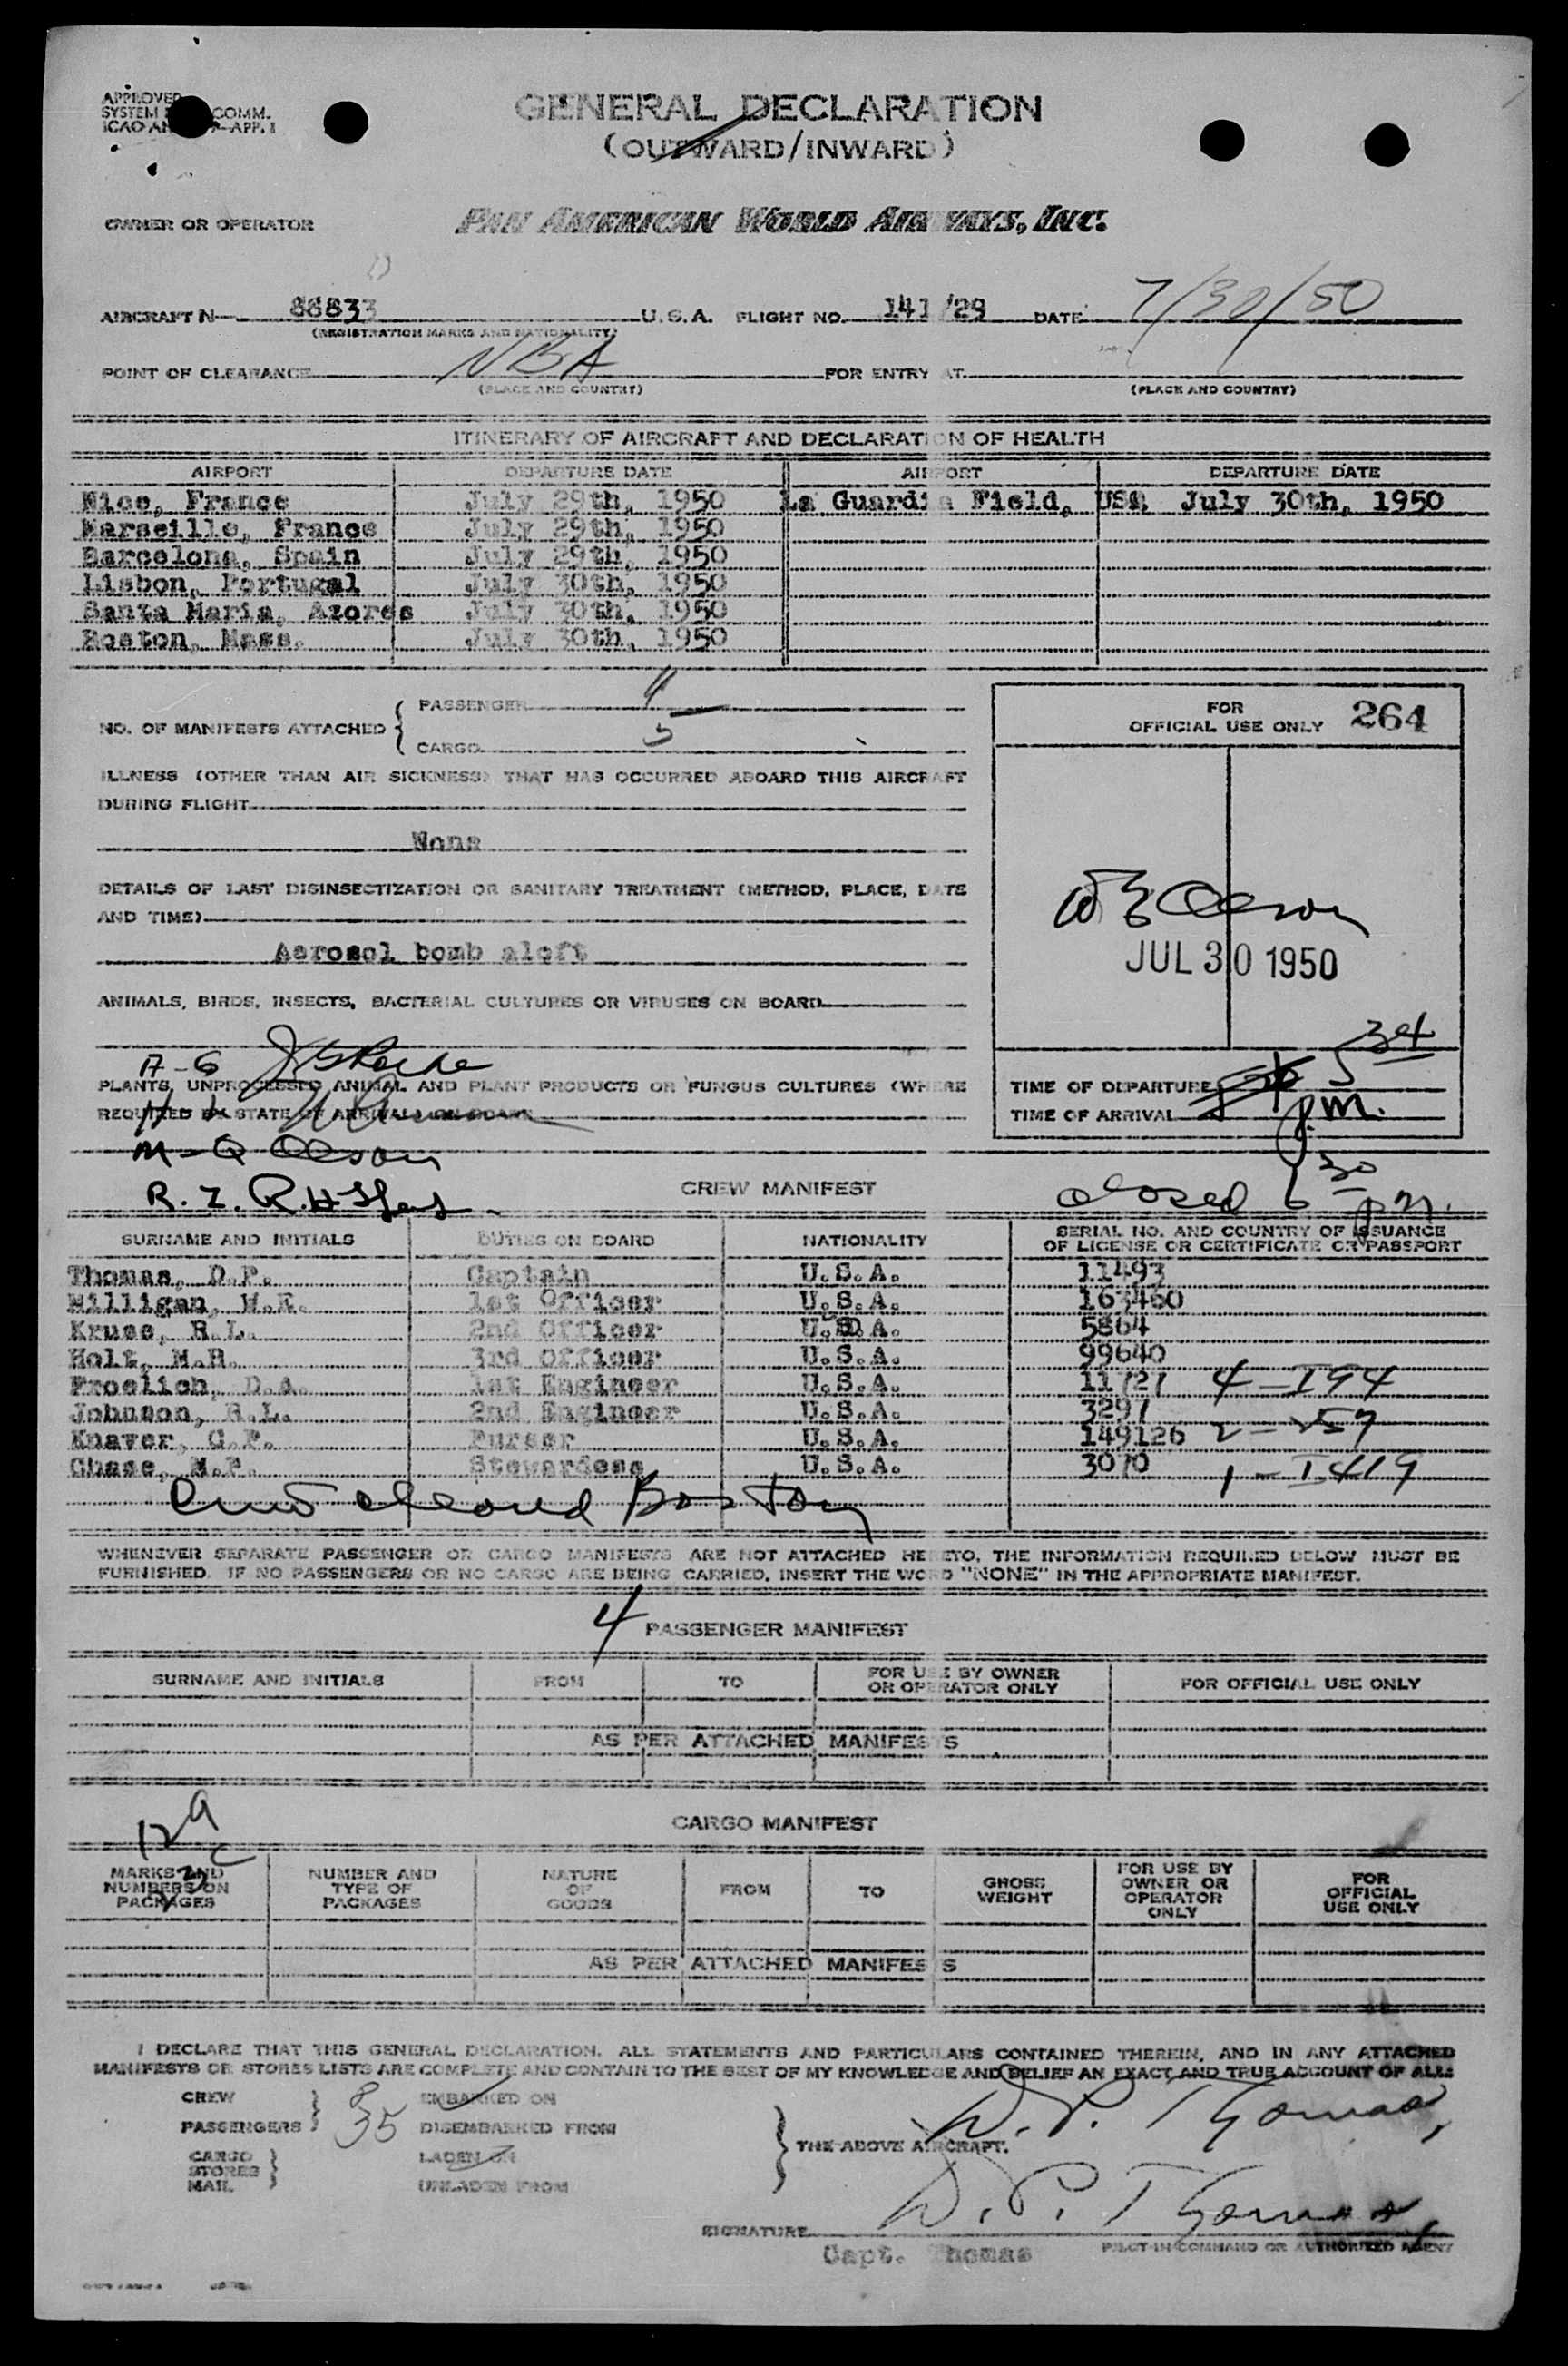 APPROVED
SYSTEM COMM.
ICAO AN -APP. 1
GENERAL DECLARATION
(OUTWARD/INWARD)
OWNER OR OPERATOR PAN AMERICAN WORLD AIRWAYS, INC.
AIRCRAFT N- 88833 U.S.A. FLIGHT NO. 141/29 DATE 7/30/50
(REGISTRATION MARKS AND NATIONALITY)
POINT OF CLEARANCE FOR ENTRY AT
(PLACE AND COUNTRY) (PLACE AND COUNTRY)
ITINERARY OF AIRCRAFT AND DECLARATION OF HEALTH
AIRPORT DEPARTURE DATE AIRPORT DEPARTURE DATE
Nice, France July 29th, 1950 La Guardia Field, USA July 30th, 1950
Marseille, France July 29th, 1950
Barcelona, Spain July 29th, 1950
Lisbon, Portugal July 30th, 1950
Santa Maria, Azores July 30th, 1950
Boston, Mass. July 30th, 1950
NO. OF MANIFESTS ATTACHED { PASSENGER 4
CARGO 5
FOR
OFFICIAL USE ONLY 264
ILLNESS (OTHER THAN AIR SICKNESS) THAT HAS OCCURRED ABOARD THIS AIRCRAFT
DURING FLIGHT
None
DETAILS OF LAST DISINSECTIZATION OR SANITARY TREATMENT (METHOD, PLACE, DATE
AND TIME)
Aerosol bomb aloft
Olson
JUL 30 1950
ANIMALS, BIRDS, INSECTS, BACTERIAL CULTURES OR VIRUSES ON BOARD
A-G
PLANTS, UNPROCESSED ANIMAL AND PLANT PRODUCTS OR FUNGUS CULTURES (WHERE
REQUIRED BY STATE OF ARRIVAL) ON BOARD
TIME OF DEPARTURE 5 34
TIME OF ARRIVAL p.m.
M-Q Olson
R.Z.
CREW MANIFEST
closed 6 30 pm.
SURNAME AND INITIALS DUTIES ON BOARD NATIONALITY SERIAL NO. AND COUNTRY OF ISSUANCE
OF LICENSE OR CERTIFICATE OR PASSPORT
Thomas, D.P. Captain U.S.A. 11493
Milligan, H.E. 1st Officer U.S.A. 163460
Kruse, R.L. 2nd Officer U.S.A. 5864
Holt, M.H. 3rd Officer U.S.A. 99640
Froelich, D.A. 1st Engineer U.S.A. 11727 4-I94
Johnson, R.L. 2nd Engineer U.S.A. 3297
Knaver, G.F. Purser U.S.A. 149126 2-257
Chase, M.P. Stewardess U.S.A. 3070 1-I419
Boston
WHENEVER SEPARATE PASSENGER OR CARGO MANIFESTS ARE NOT ATTACHED HERETO, THE INFORMATION REQUIRED BELOW MUST BE
FURNISHED. IF NO PASSENGERS OR NO CARGO ARE BEING CARRIED, INSERT THE WORD "NONE" IN THE APPROPRIATE MANIFEST.
4 PASSENGER MANIFEST
SURNAME AND INITIALS FROM TO FOR USE BY OWNER
OR OPERATOR ONLY FOR OFFICIAL USE ONLY
AS PER ATTACHED MANIFESTS
CARGO MANIFEST
MARKS AND
NUMBERS ON
PACKAGES
NUMBER AND
TYPE OF
PACKAGES
NATURE
OF
GOODS
FROM
TO
GROSS
WEIGHT
FOR USE BY
OWNER OR
OPERATOR
ONLY
FOR
OFFICIAL
USE ONLY
AS PER ATTACHED MANIFESTS
I DECLARE THAT THIS GENERAL DECLARATION, ALL STATEMENTS AND PARTICULARS CONTAINED THEREIN, AND IN ANY ATTACHED
MANIFESTS OR STORES LISTS ARE COMPLETE AND CONTAIN TO THE BEST OF MY KNOWLEDGE AND BELIEF AN EXACT AND TRUE ACCOUNT OF ALL:
CREW 8 EMBARKED ON
PASSENGERS 35 DISEMBARKED FROM
CARGO LADEN ON
STORES
MAIL UNLADEN FROM
THE ABOVE AIRCRAFT.
D. P. Thomas
SIGNATURE D. P. Thomas
Capt. Thomas PILOT-IN-COMMAND OR AUTHORIZED AGENT